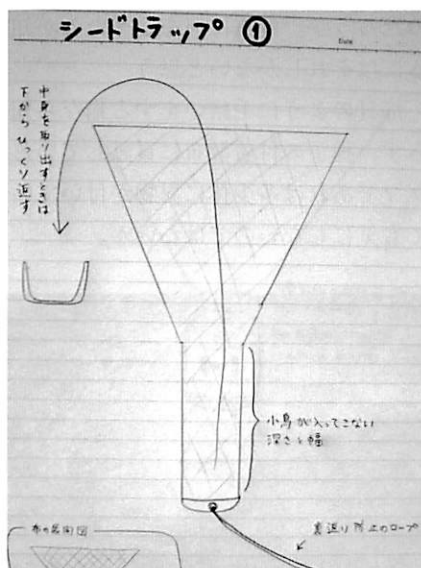 シードトラップ ①
Date
中身を取り出すときは
下からひっくり返す
小鳥が入ってこない
深さと幅
裏返り防止のロープ
布の展開図